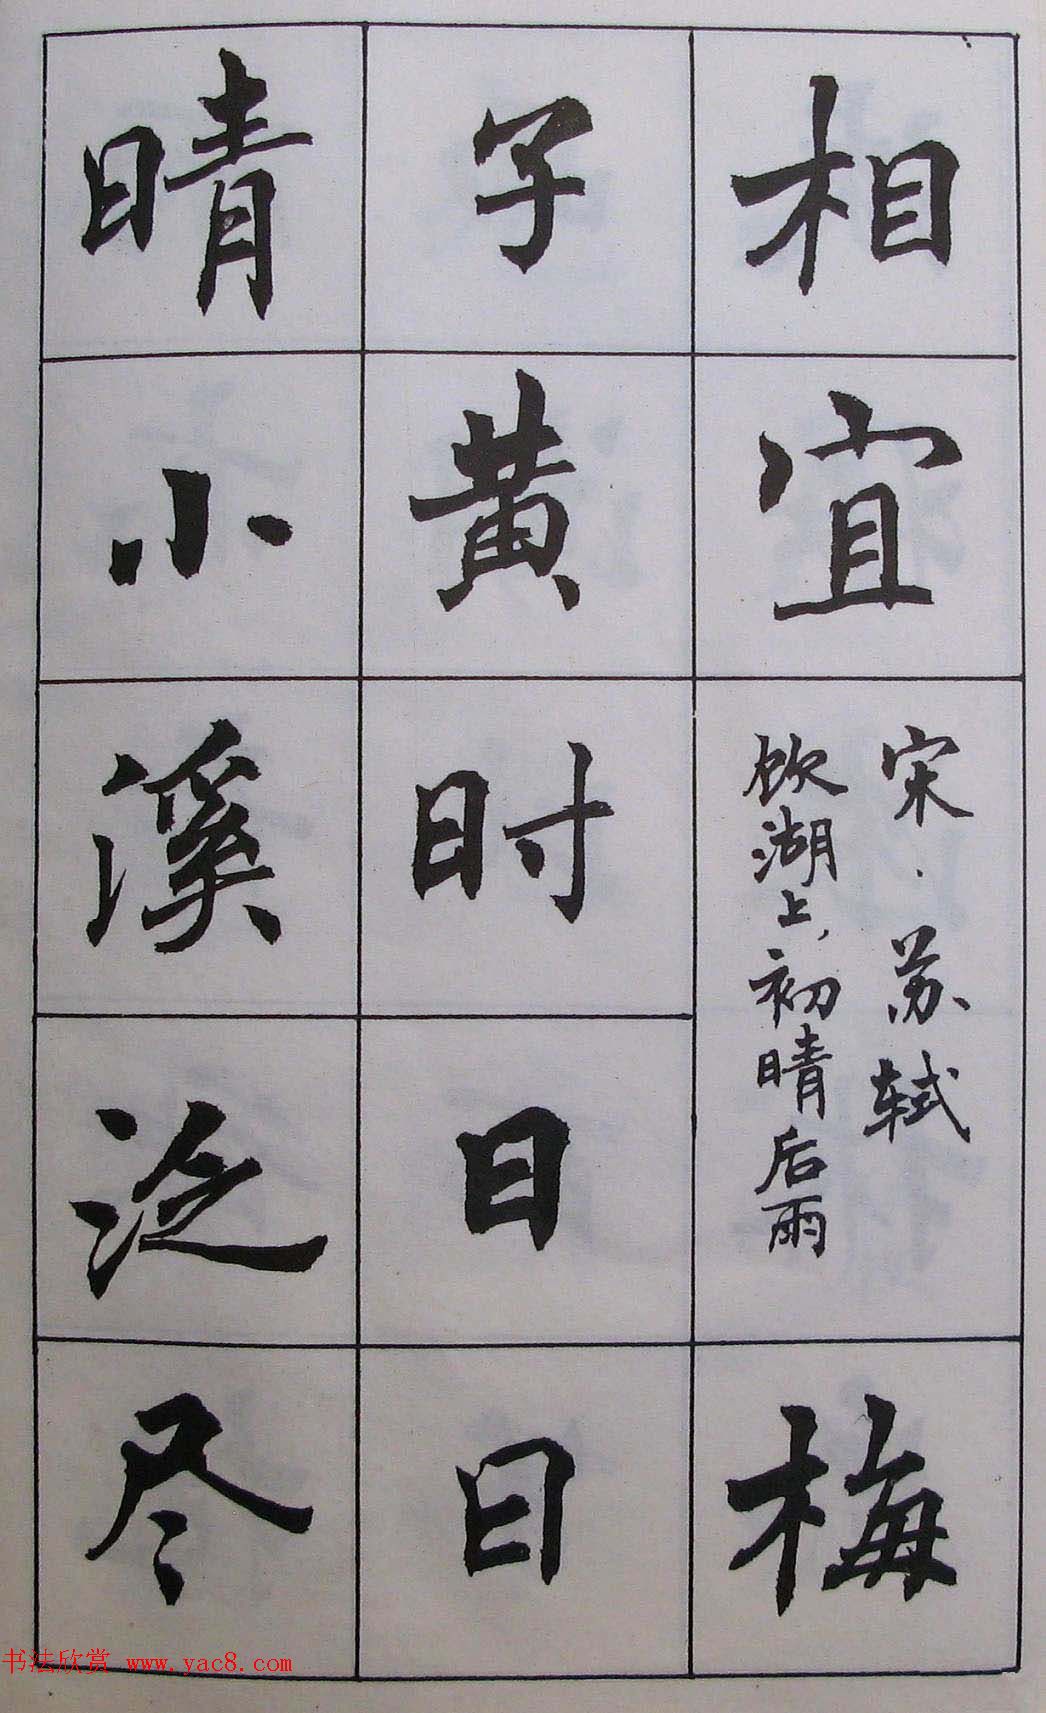 相宜
宋·苏轼
饮湖上,初晴后雨
梅
子黄时日日
晴小溪泛尽
书法欣赏 www.yac8.com